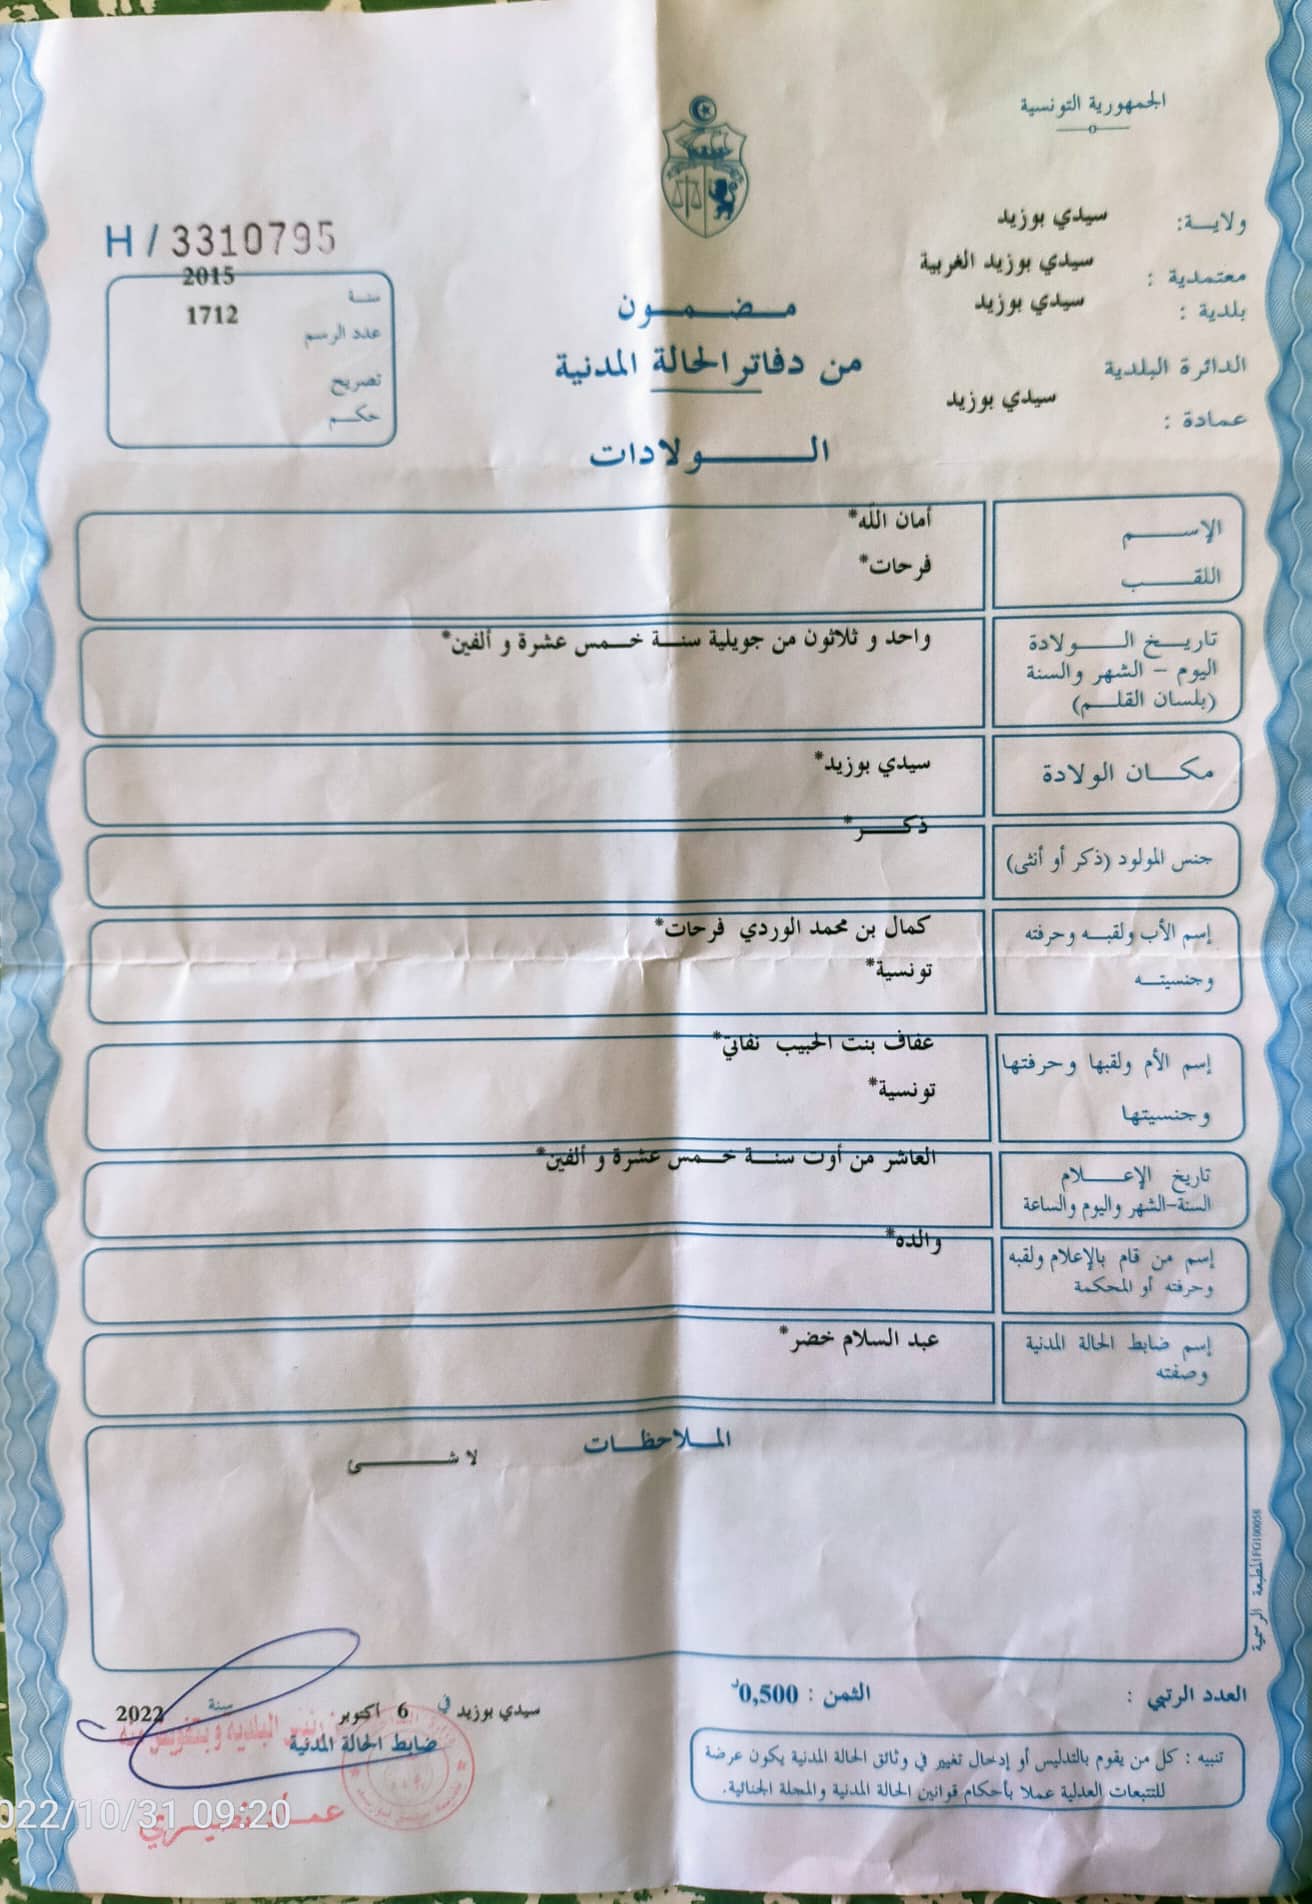 الجمهورية التونسية
ولايــة: سيدي بوزيد
معتمدية : سيدي بوزيد الغربية
بلدية : سيدي بوزيد
الدائرة البلدية
عمادة : سيدي بوزيد
H / 3310795
سنـة 2015
عدد الرسم 1712
تصريح
حكـم
مـــضـــمـــون
من دفاتر الحالة المدنية
الـــــولادات
الإســــم أمان الله*
اللقـــب فرحات*
تاريــخ الـــــولادة واحد و ثلاثون من جويلية سنــة خــمس عشرة و ألفين*
اليوم – الشهر والسنة
(بلسان القلــم)
مكـــان الولادة سيدي بوزيد*
جنس المولود (ذكر أو أنثى) ذكـــر*
إسم الأب ولقبــه وحرفته كمال بن محمد الوردي فرحات*
وجنسيتــه تونسية*
إسم الأم ولقبها وحرفتها عفاف بنت الحبيب نفاتي*
وجنسيتها تونسية*
تاريخ الإعـــــلام العاشر من أوت سنــة خــمس عشرة و ألفين*
السنة-الشهر واليوم والساعة
إسم من قام بالإعلام ولقبه والده*
وحرفته أو المحكمة
إسم ضابط الحالة المدنية عبد السلام خضر*
وصفته
المــلاحظــات
لا شـــــــئ
المطبعة الرسمية
العدد الرتبي : الثمن : 0,500د
سيدي بوزيد في 6 أكتوبر سنة 2022
ضابط الحالة المدنية
تنبيه : كل من يقوم بالتدليس أو إدخال تغيير في وثائق الحالة المدنية يكون عرضة
للتتبعات العدلية عملا بأحكام قوانين الحالة المدنية والمجلة الجنائية.
022/10/31 09:20